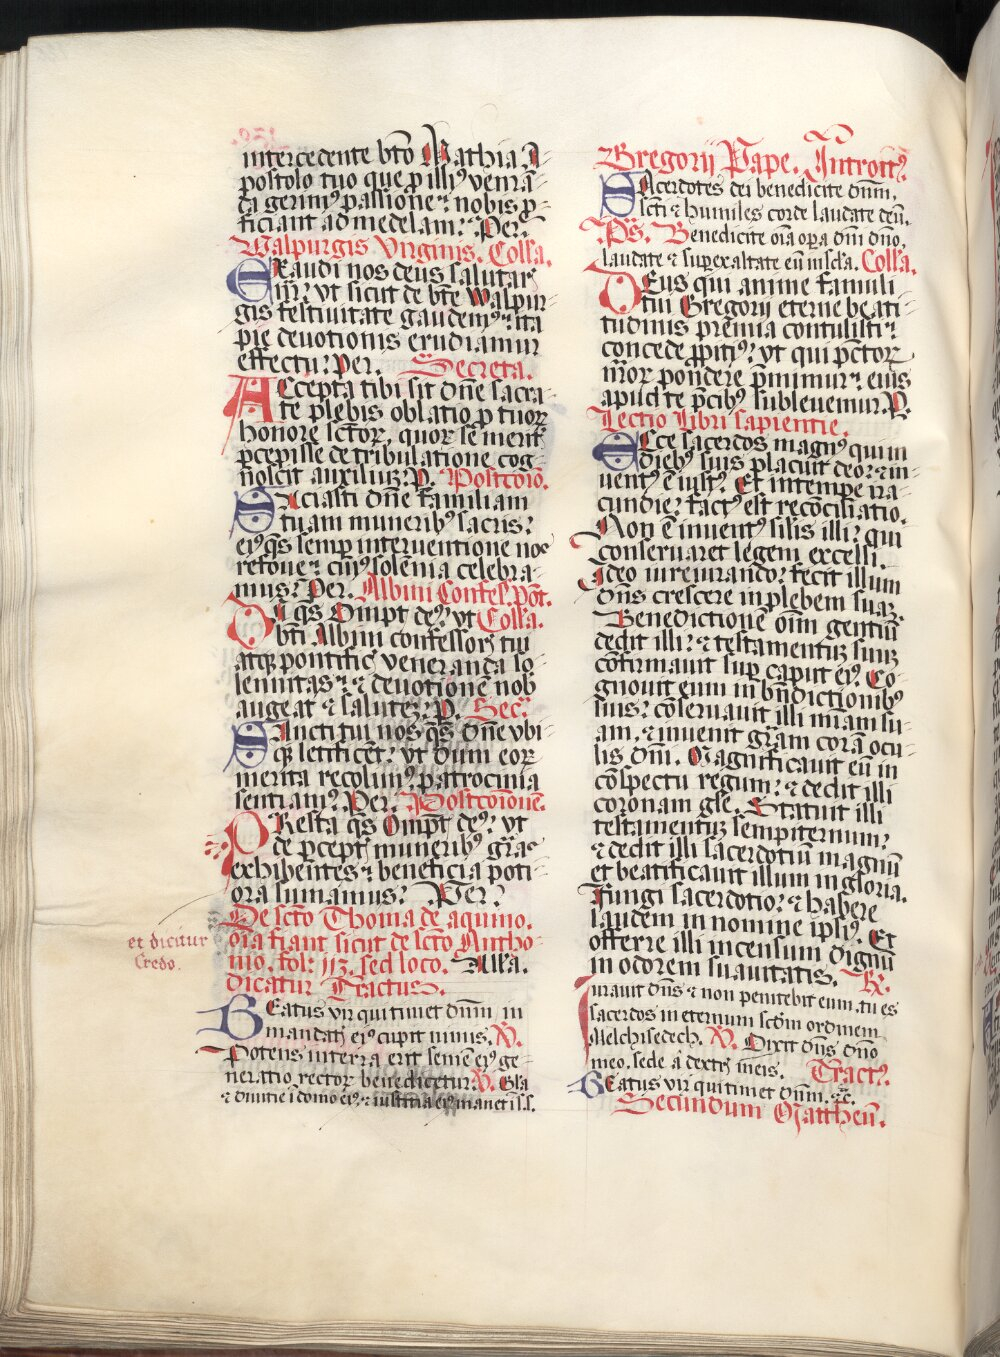 intercedente bt̄o Mathia A-
postolo tuo que p illiꝰ venerā-
da gerimꝰ passione ⁊ nobis ꝓ-
ficiant ad medelam: Per.
Walpurgis Virginis. Coll̄a.
EXaudi nos deus salutar̄
n̄r: vt sicut de bt̄e walpur-
gis festiuitate gaudemꝰ: ita
pie deuotionis erudiamur
effectu: Per. Secreta.
ACcepta tibi sit dn̄e sacra-
te plebis oblatio ꝓ tuoꝝ
honore sc̄toꝝ, quoꝝ se merit̄
ꝑcepisse de tribulatione cog-
noscit auxiliuꝫ: P. Postcoīo.
SAciasti dn̄e familiam
tuam muneribꝰ sacris:
eiꝰ q̄s semꝑ interuentione nos
refoue: cuiꝰ solēnia celebra-
mus: Per. Albini Confess. pōt.
DA q̄s Om̄pt deꝰ: vt Coll̄a.
bt̄i Albini confessoris tui
atqꝫ pontificis veneranda so-
lennitas: ⁊ deuotionē nob̄
augeat ⁊ saluteꝫ: P. Sec̄.
SAncti tui nos q̄s dn̄e vbi-
qꝫ letificēt: vt dum eoꝝ
merita recolimꝰ patrocinia
sentiamꝰ: Per. Postcōionē.
PResta q̄s Om̄pt deꝰ: vt
de ꝑceptis muneribꝰ gr̄as
exhibentes: beneficia poti-
ora sumamus: Per:
De sct̄o Thoma de aquino.
oīa fiant sicut de sct̄o Antho-
nio. fol: 113. sed loco. All̄a.
dicatur Tractus.
et dicitur
Credo.
BEatus vir qui timet dn̄m in
mandatis eiꝰ cupit nimis. V̄.
Potens in terra erit semē eiꝰ ge-
neratio rectoꝝ benedicetur. V̄. Gl̄a
⁊ diuitie ī domo eiꝰ: ⁊ iustitia eiꝰ manet ī s.s.
Gregorij Pape. Introitꝰ.
SAcerdotes dei benedicite dn̄m,
sc̄ti ⁊ humiles corde laudate deū.
Ps. Benedicite oīa oꝑa dn̄i dn̄o,
laudate ⁊ suꝑexaltate eū in sc̄la. Coll̄a.
DEus qui anime famuli
tui Gregorij eterne beati-
tudinis premia contulisti:
concede ꝓpitiꝰ: vt qui pct̄oꝝ
nr̄oꝝ pondere p̄mimur: eius
apud te p̄cibꝰ subleuemur. P.
Lectio libri sapientie.
ECce sacerdos magnꝰ qui in
diebꝰ suis placuit deo: ⁊ in-
uentꝰ ē iustꝰ. Et in tempe ira-
cundie: factꝰ est reconciliatio.
Non ē inuentꝰ silis illi: qui
conseruaret legem excelsi.
Ideo iureiurando: fecit illum
dn̄s crescere in plebem suaꝫ.
Benedictionē oīm gentiū
dedit illi: ⁊ testamentuꝫ suuꝫ
cōfirmauit suꝑ caput eiꝰ. Co-
gnouit eum in bn̄dictionibꝰ
suis: cōseruauit illi mīam su-
am: ⁊ inuenit gr̄am corā ocu-
lis dn̄i. Magnificauit eū in
cōspectu regum: ⁊ dedit illi
coronam gl̄e. Statuit illi
testamentuꝫ sempiternum:
⁊ dedit illi sacerdotiū magnū
et beatificauit illum in gloria.
Fungi sacerdotio: ⁊ habere
laudem in nomine ipsiꝰ. Et
offerre illi incensum dignū
in odorem suauitatis. R̄.
Iurauit dn̄s ⁊ non penitebit eum. tu es
sacerdos in eternum scd̄m ordinem
Melchisedech. V̄. Dixit dn̄s dn̄o
meo. sede a dextris meis. Tractꝰ.
BEatus vir qui timet dn̄m. ⁊c̄.
Secundum Mattheū.